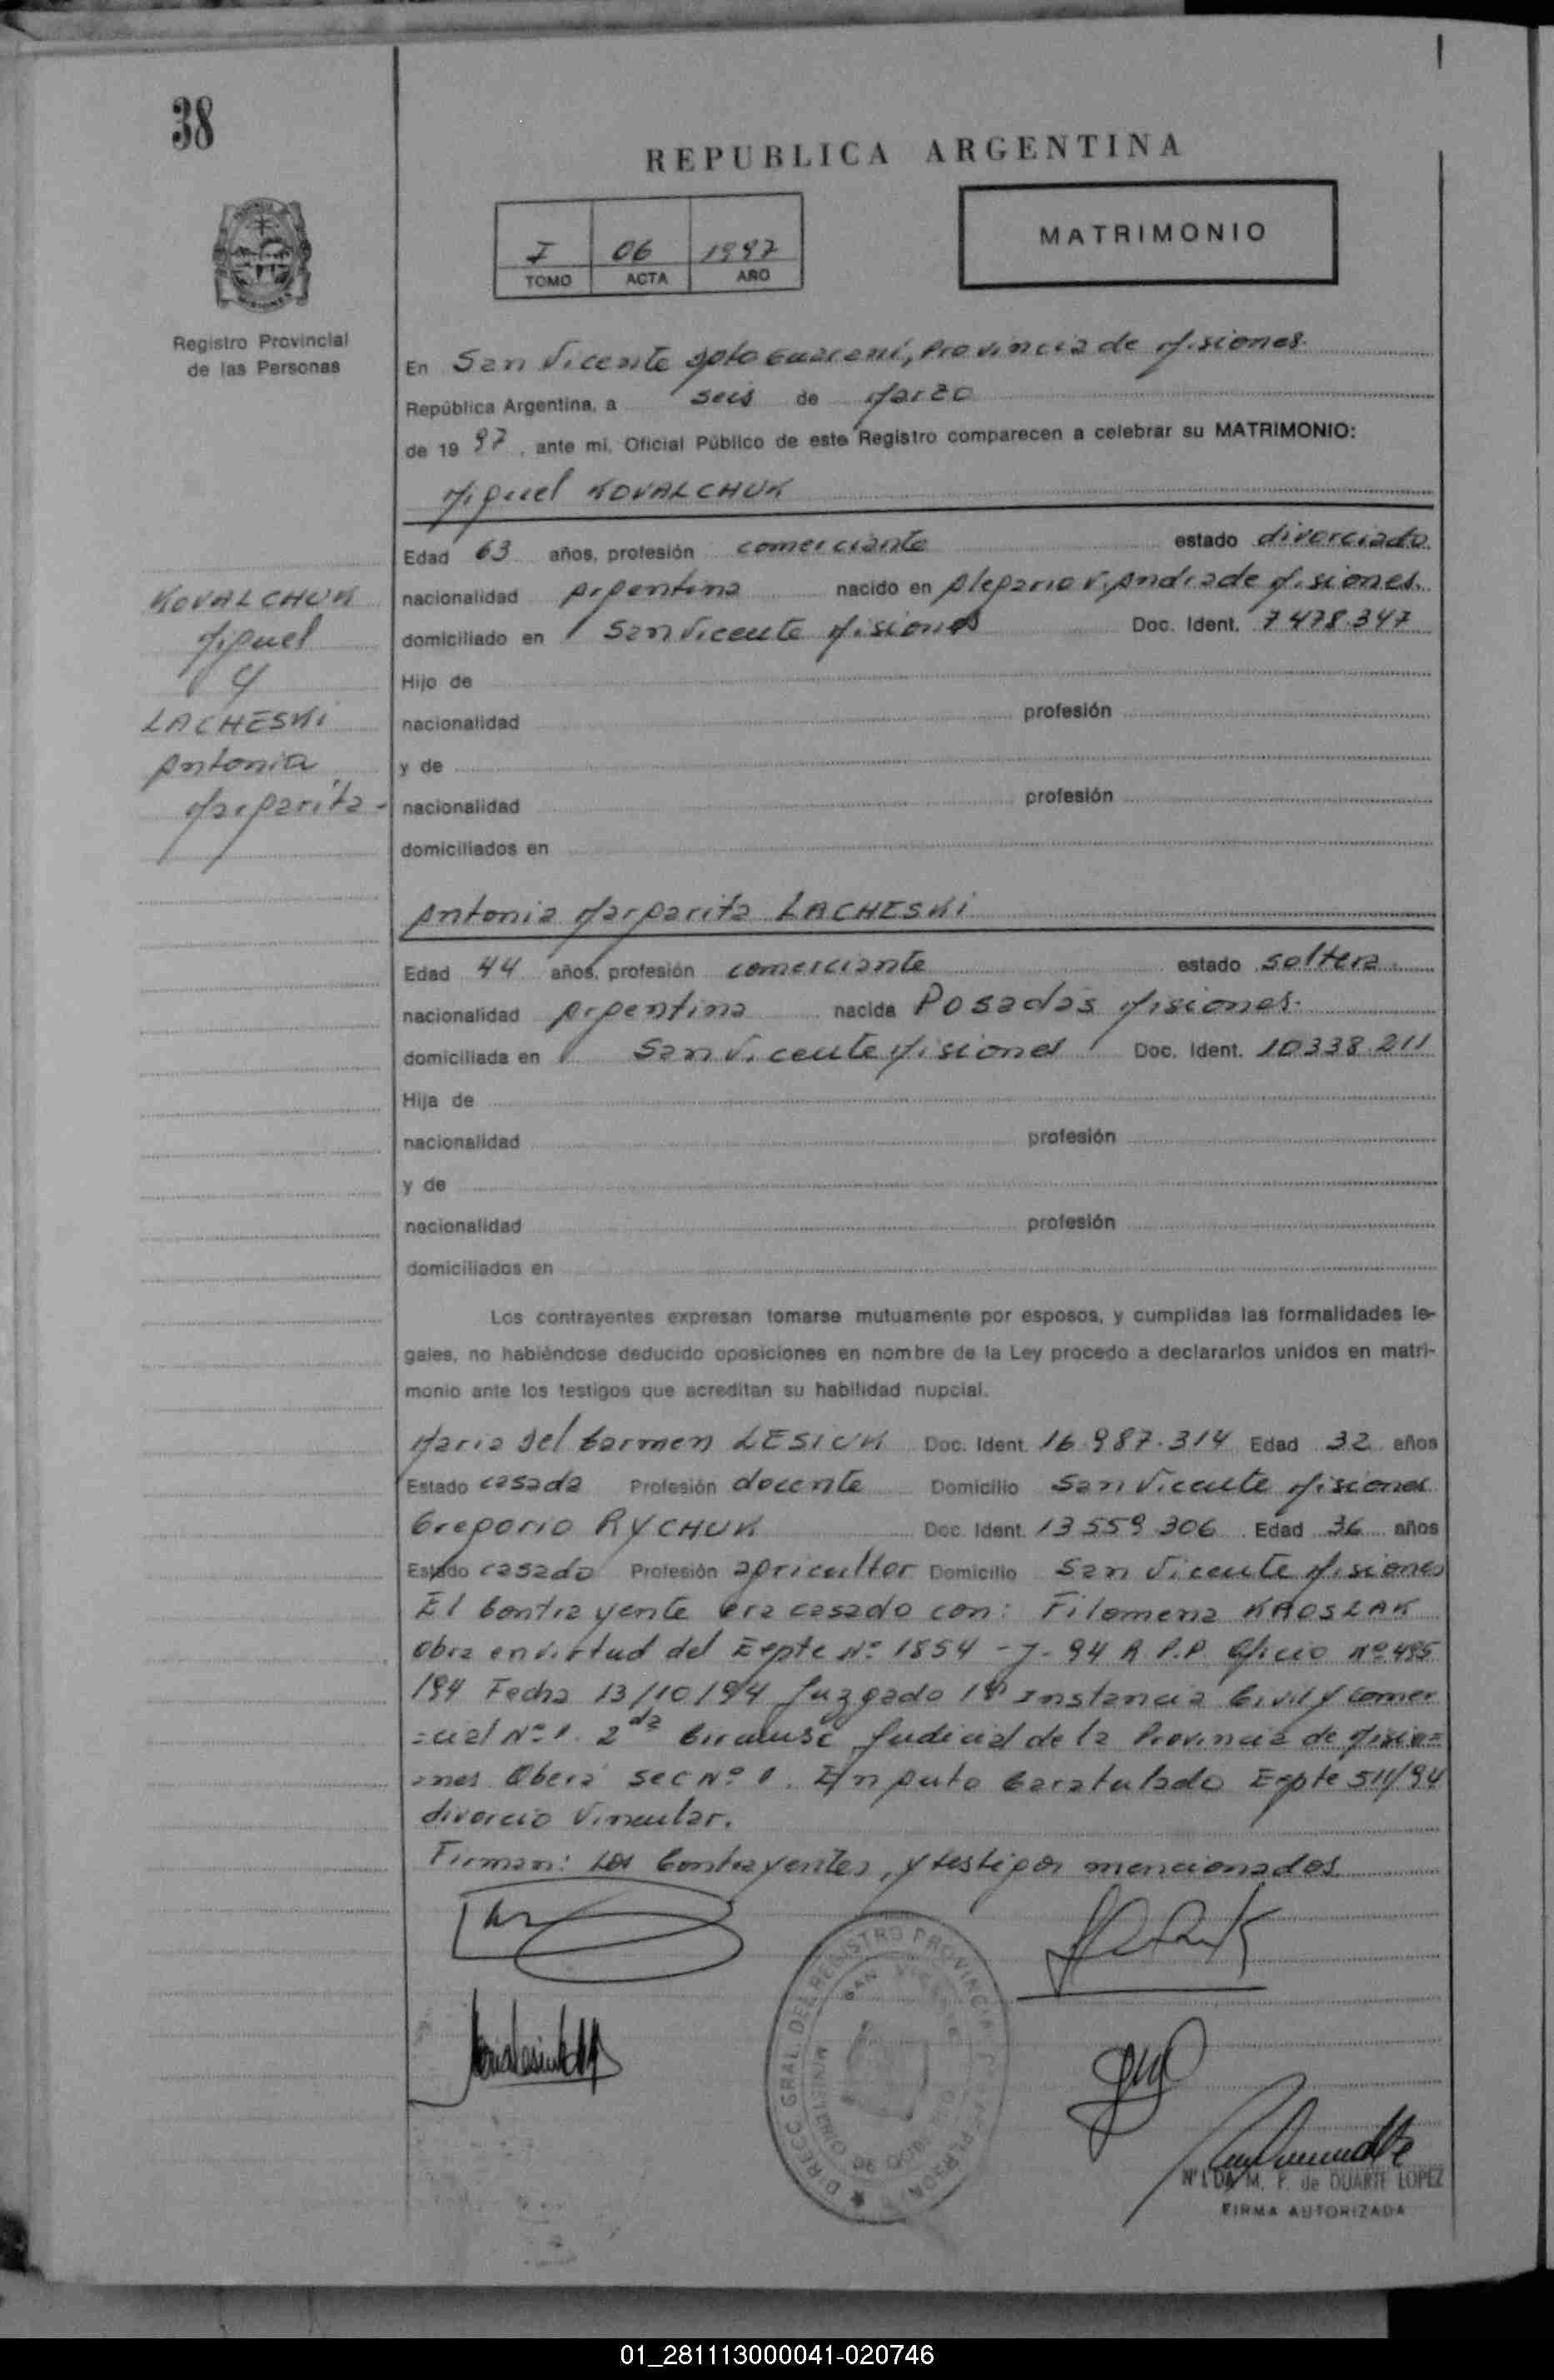 38
REPUBLICA ARGENTINA
I 06 1997
TOMO ACTA AÑO
MATRIMONIO
Registro Provincial
de las Personas
En San Vicente Dpto Guaraní, Provincia de Misiones.
República Argentina, a seis de Marzo
de 19 97, ante mi, Oficial Público de este Registro comparecen a celebrar su MATRIMONIO:
Miguel KOVALCHUK
Edad 63 años, profesión comerciante estado divorciado
nacionalidad Argentina nacido en Olegario V. Andrade Misiones.
domiciliado en San Vicente Misiones Doc. Ident. 7478.347
Hijo de
nacionalidad profesión
y de
nacionalidad profesión
domiciliados en
KOVALCHUK
Miguel
Y
LACHESKI
Antonia
Margarita-
Antonia Margarita LACHESKI
Edad 44 años, profesión comerciante estado soltera.
nacionalidad Argentina nacida Posadas Misiones.
domiciliada en San Vicente Misiones Doc. Ident. 10338.211
Hija de
nacionalidad profesión
y de
nacionalidad profesión
domiciliados en
Los contrayentes expresan tomarse mutuamente por esposos, y cumplidas las formalidades le-
gales, no habiéndose deducido oposiciones en nombre de la Ley procedo a declararlos unidos en matri-
monio ante los testigos que acreditan su habilidad nupcial.
Maria del Carmen LESIUK Doc. Ident. 16.987.314 Edad 32 años
Estado casada Profesión docente Domicilio San Vicente Misiones
Gregorio RYCHUK Doc. Ident. 13559306 Edad 36 años
Estado casado Profesión agricultor Domicilio San Vicente Misiones
El Contrayente era casado con: Filomena KROSLAK
Obra en virtud del Expte Nº 1854 - J- 94 R.P.P. Oficio Nº 495
/94 Fecha 13/10/94 Juzgado 1ª Instancia Civil y Comer
=cial Nº 1. 2da Circunsc Judicial de la Provincia de Misio=
=nes Oberá Sec Nº 1. En Auto Caratulado Expte 511/94
divorcio Vincular.
Firman: Los Contrayentes, y testigos mencionados
DIRECC GRAL DEL REGISTRO PROVINCIAL
SAN VICENTE
MINISTERIO DE GOBIERNO
NILDA M. F. de DUARTE LOPEZ
FIRMA AUTORIZADA
01_281113000041-020746